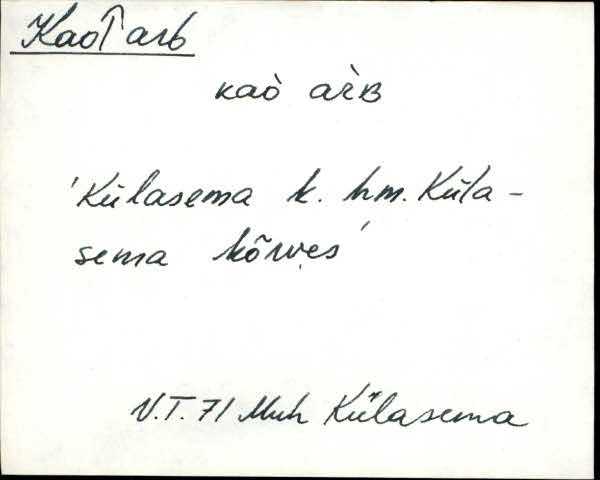 Kao⌈arb
kaò àrʙ
'Külasema k. hm. Küla-
sema kõrves'
V.T. 71 Muh Külasema